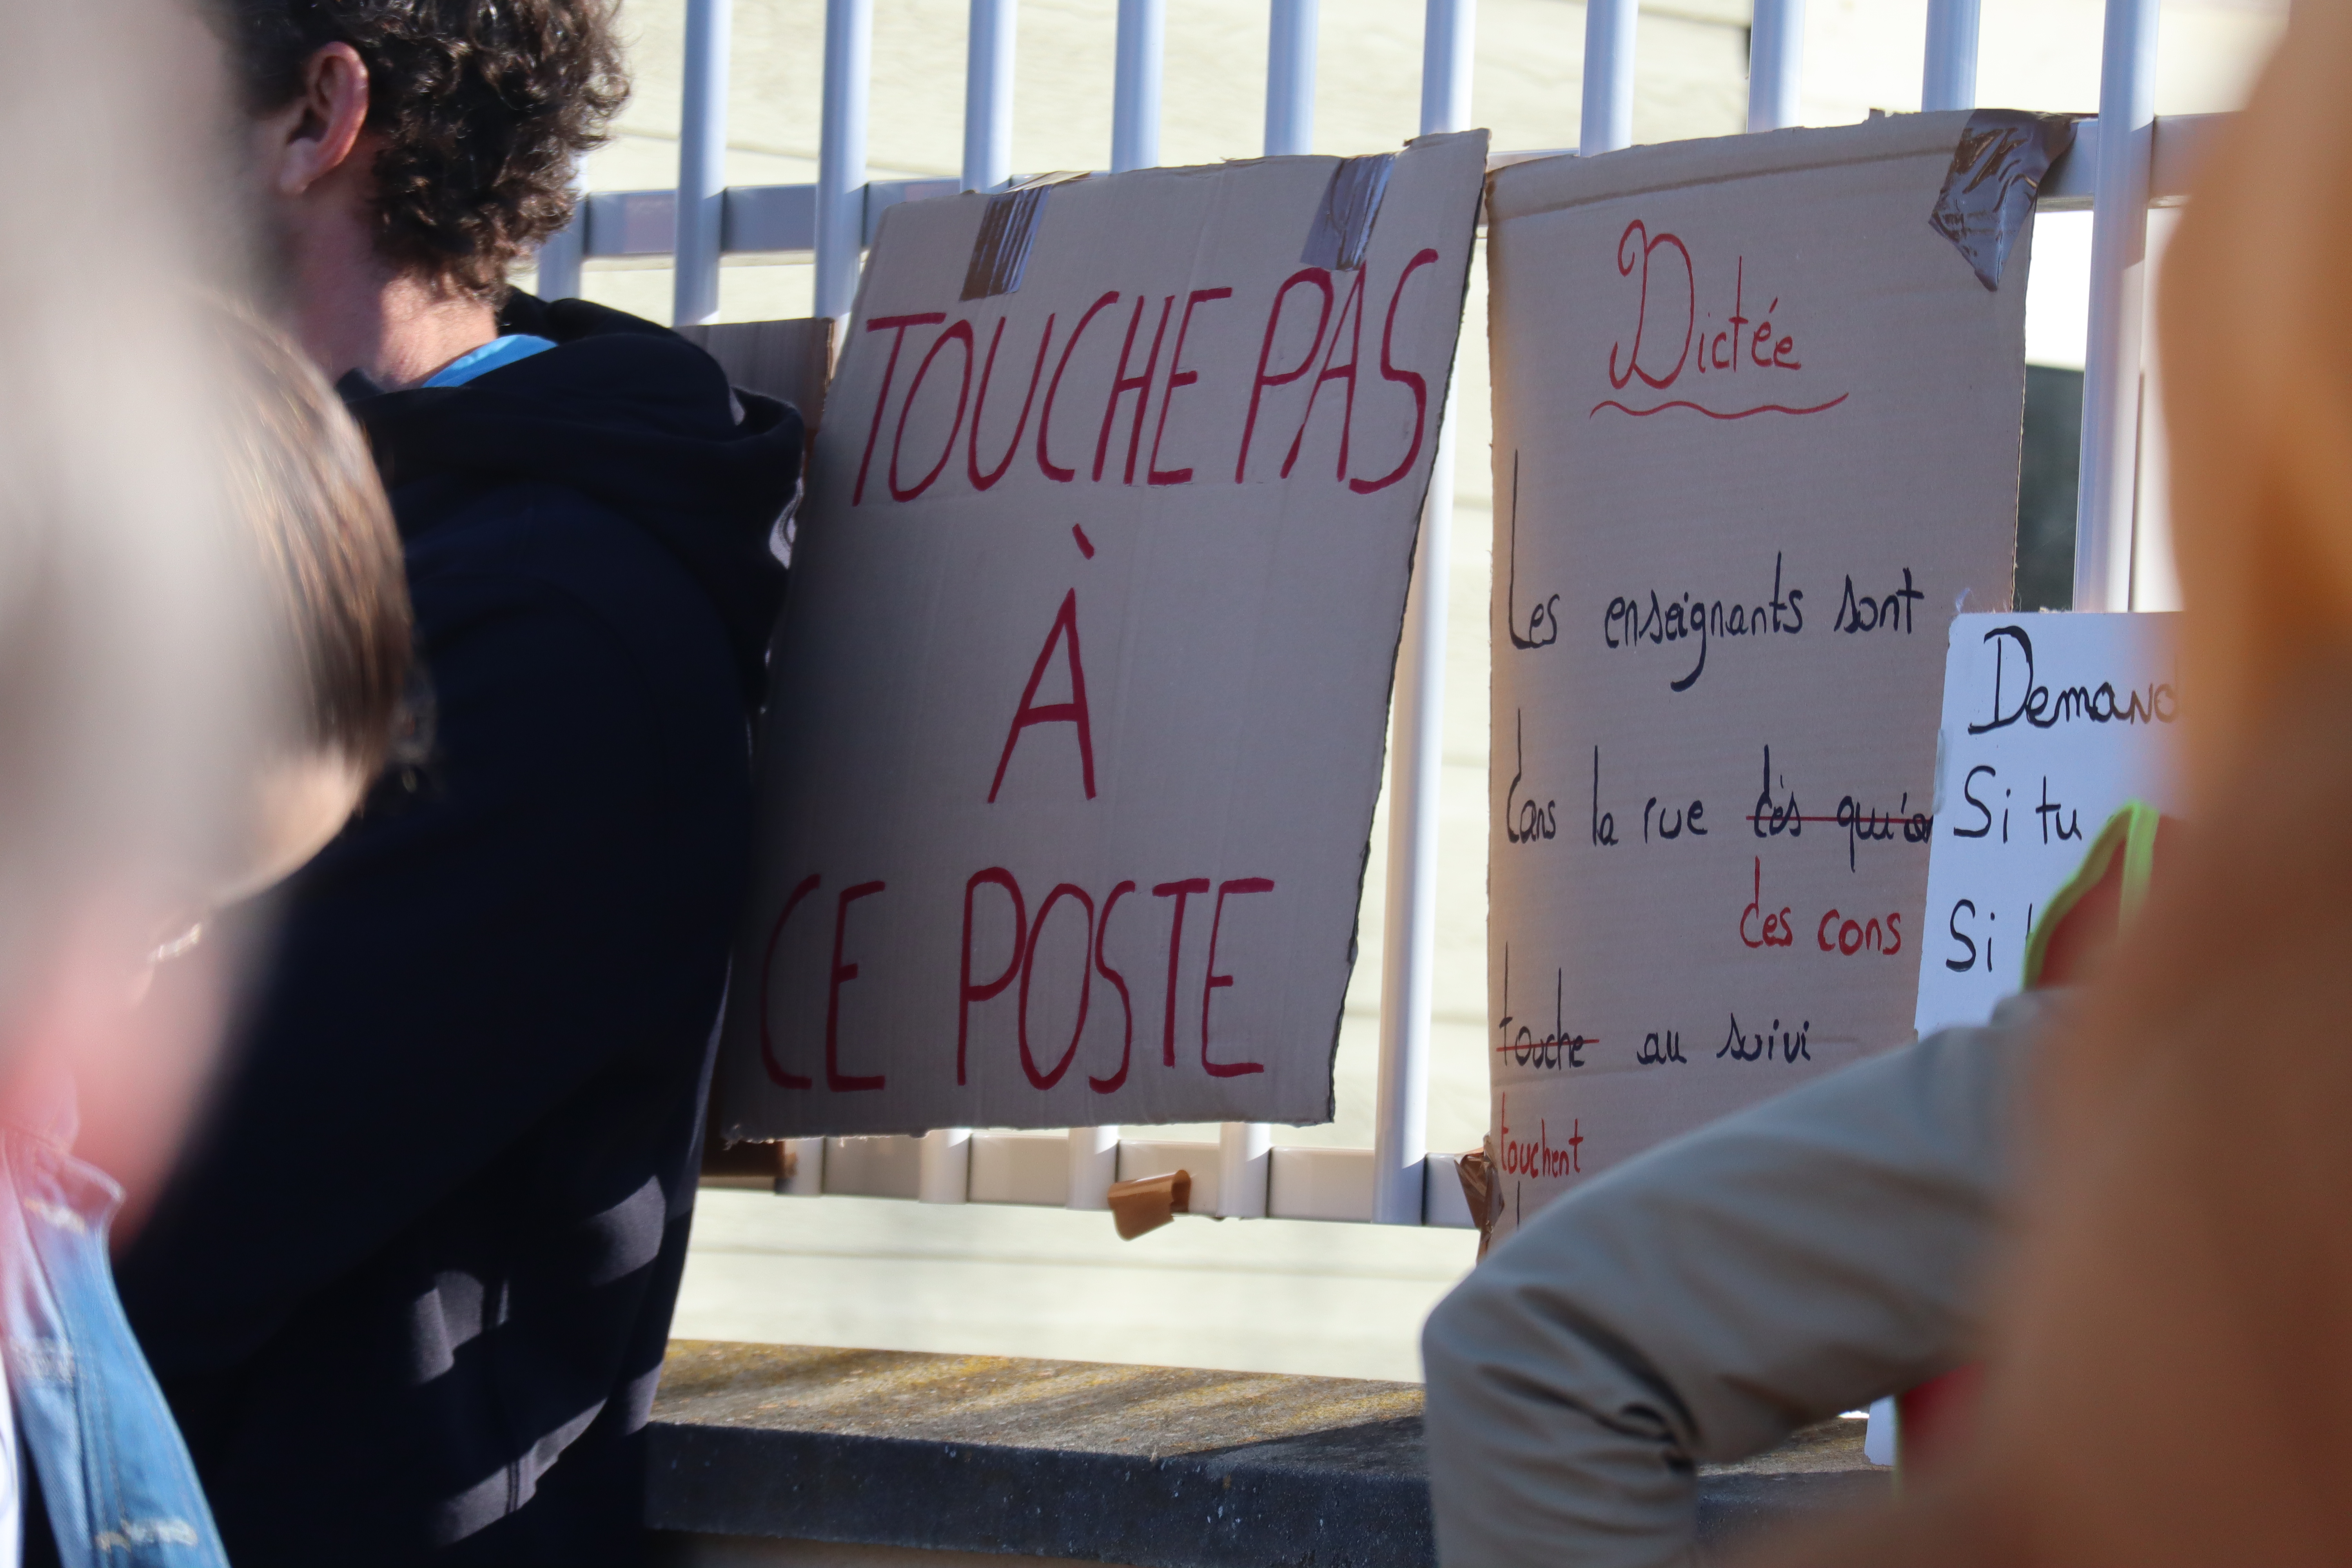 TOUCHE PAS
À
CE POSTE
Dictée
Les enseignants sont
dans la rue dès qu'on
des cons
touche au suivi
touchent
Demand
Si tu
Si